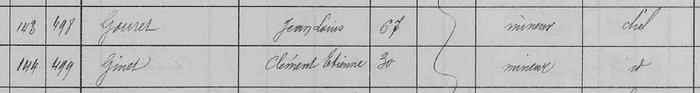 143 498 Gouret Jean Louis 67 mineur chef
144 499 Ginet Clément Etienne 30 mineur id